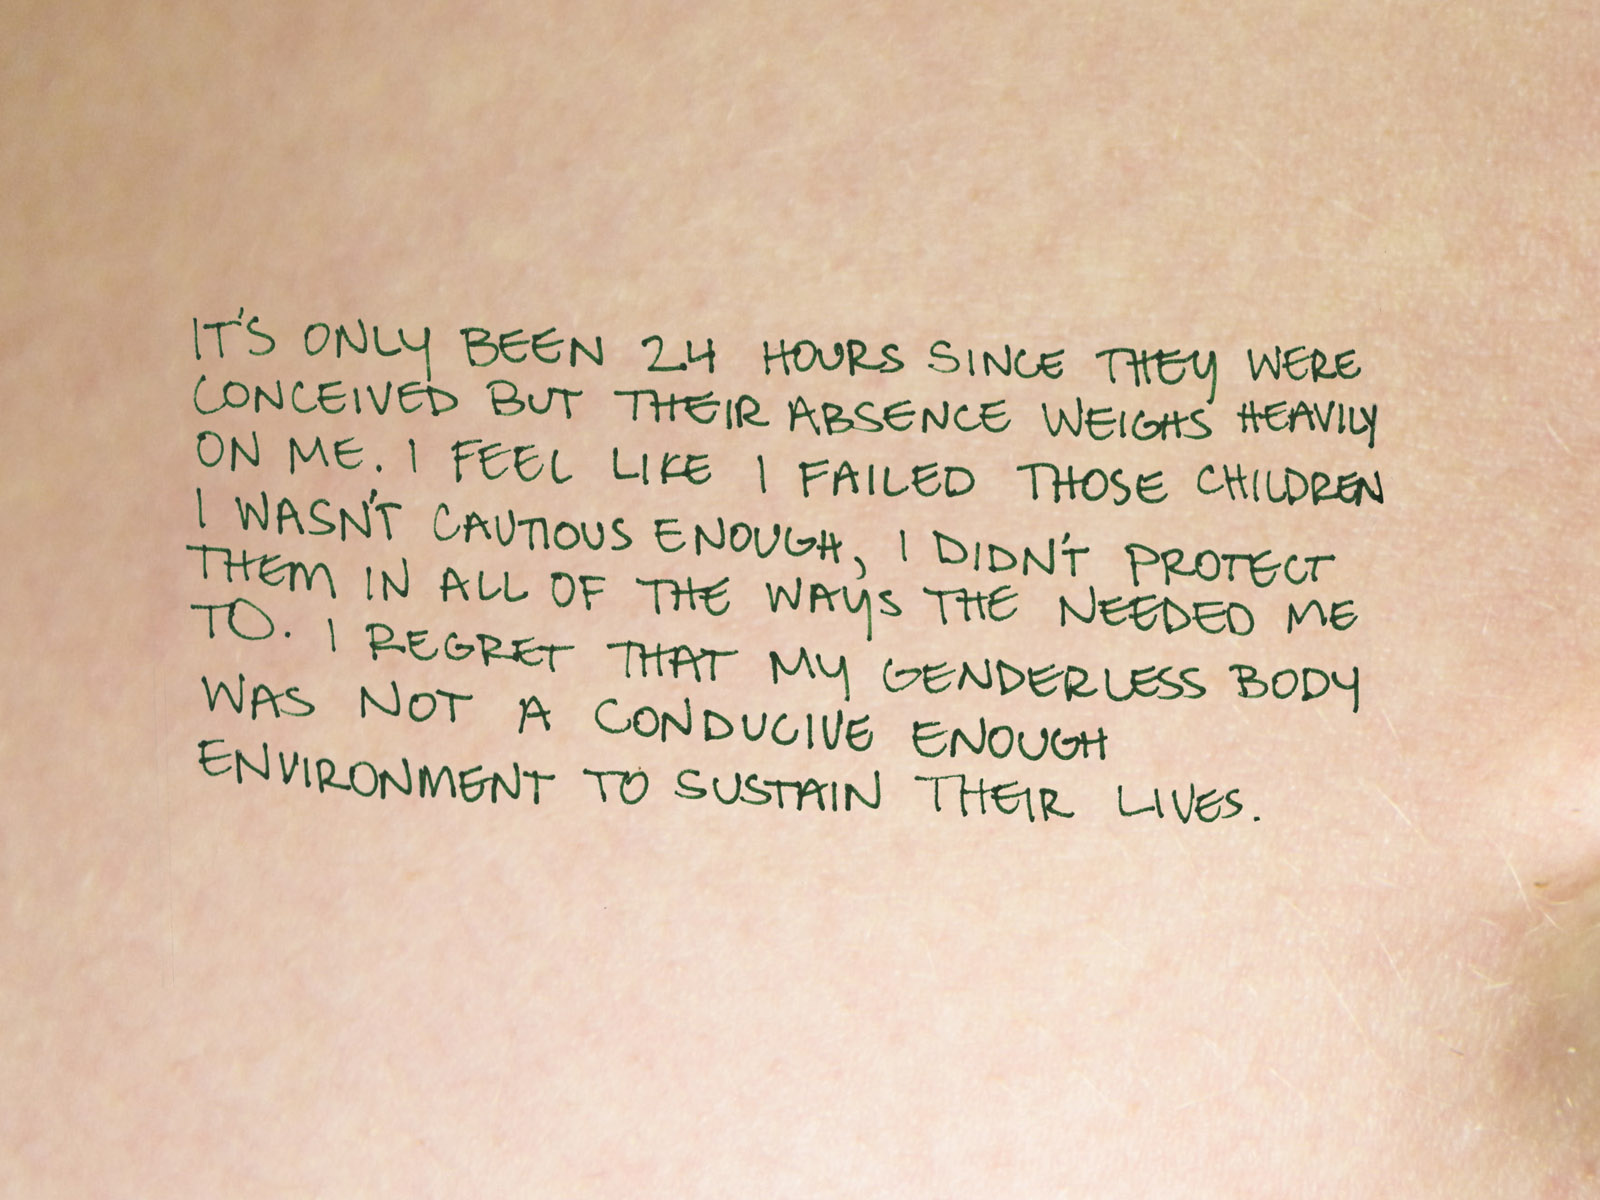 IT'S ONLY BEEN 24 HOURS SINCE THEY WERE
CONCEIVED BUT THEIR ABSENCE WEIGHS HEAVILY
ON ME. I FEEL LIKE I FAILED THOSE CHILDREN
I WASN'T CAUTIOUS ENOUGH, I DIDN'T PROTECT
THEM IN ALL OF THE WAYS THE NEEDED ME
TO. I REGRET THAT MY GENDERLESS BODY
WAS NOT A CONDUCIVE ENOUGH
ENVIRONMENT TO SUSTAIN THEIR LIVES.